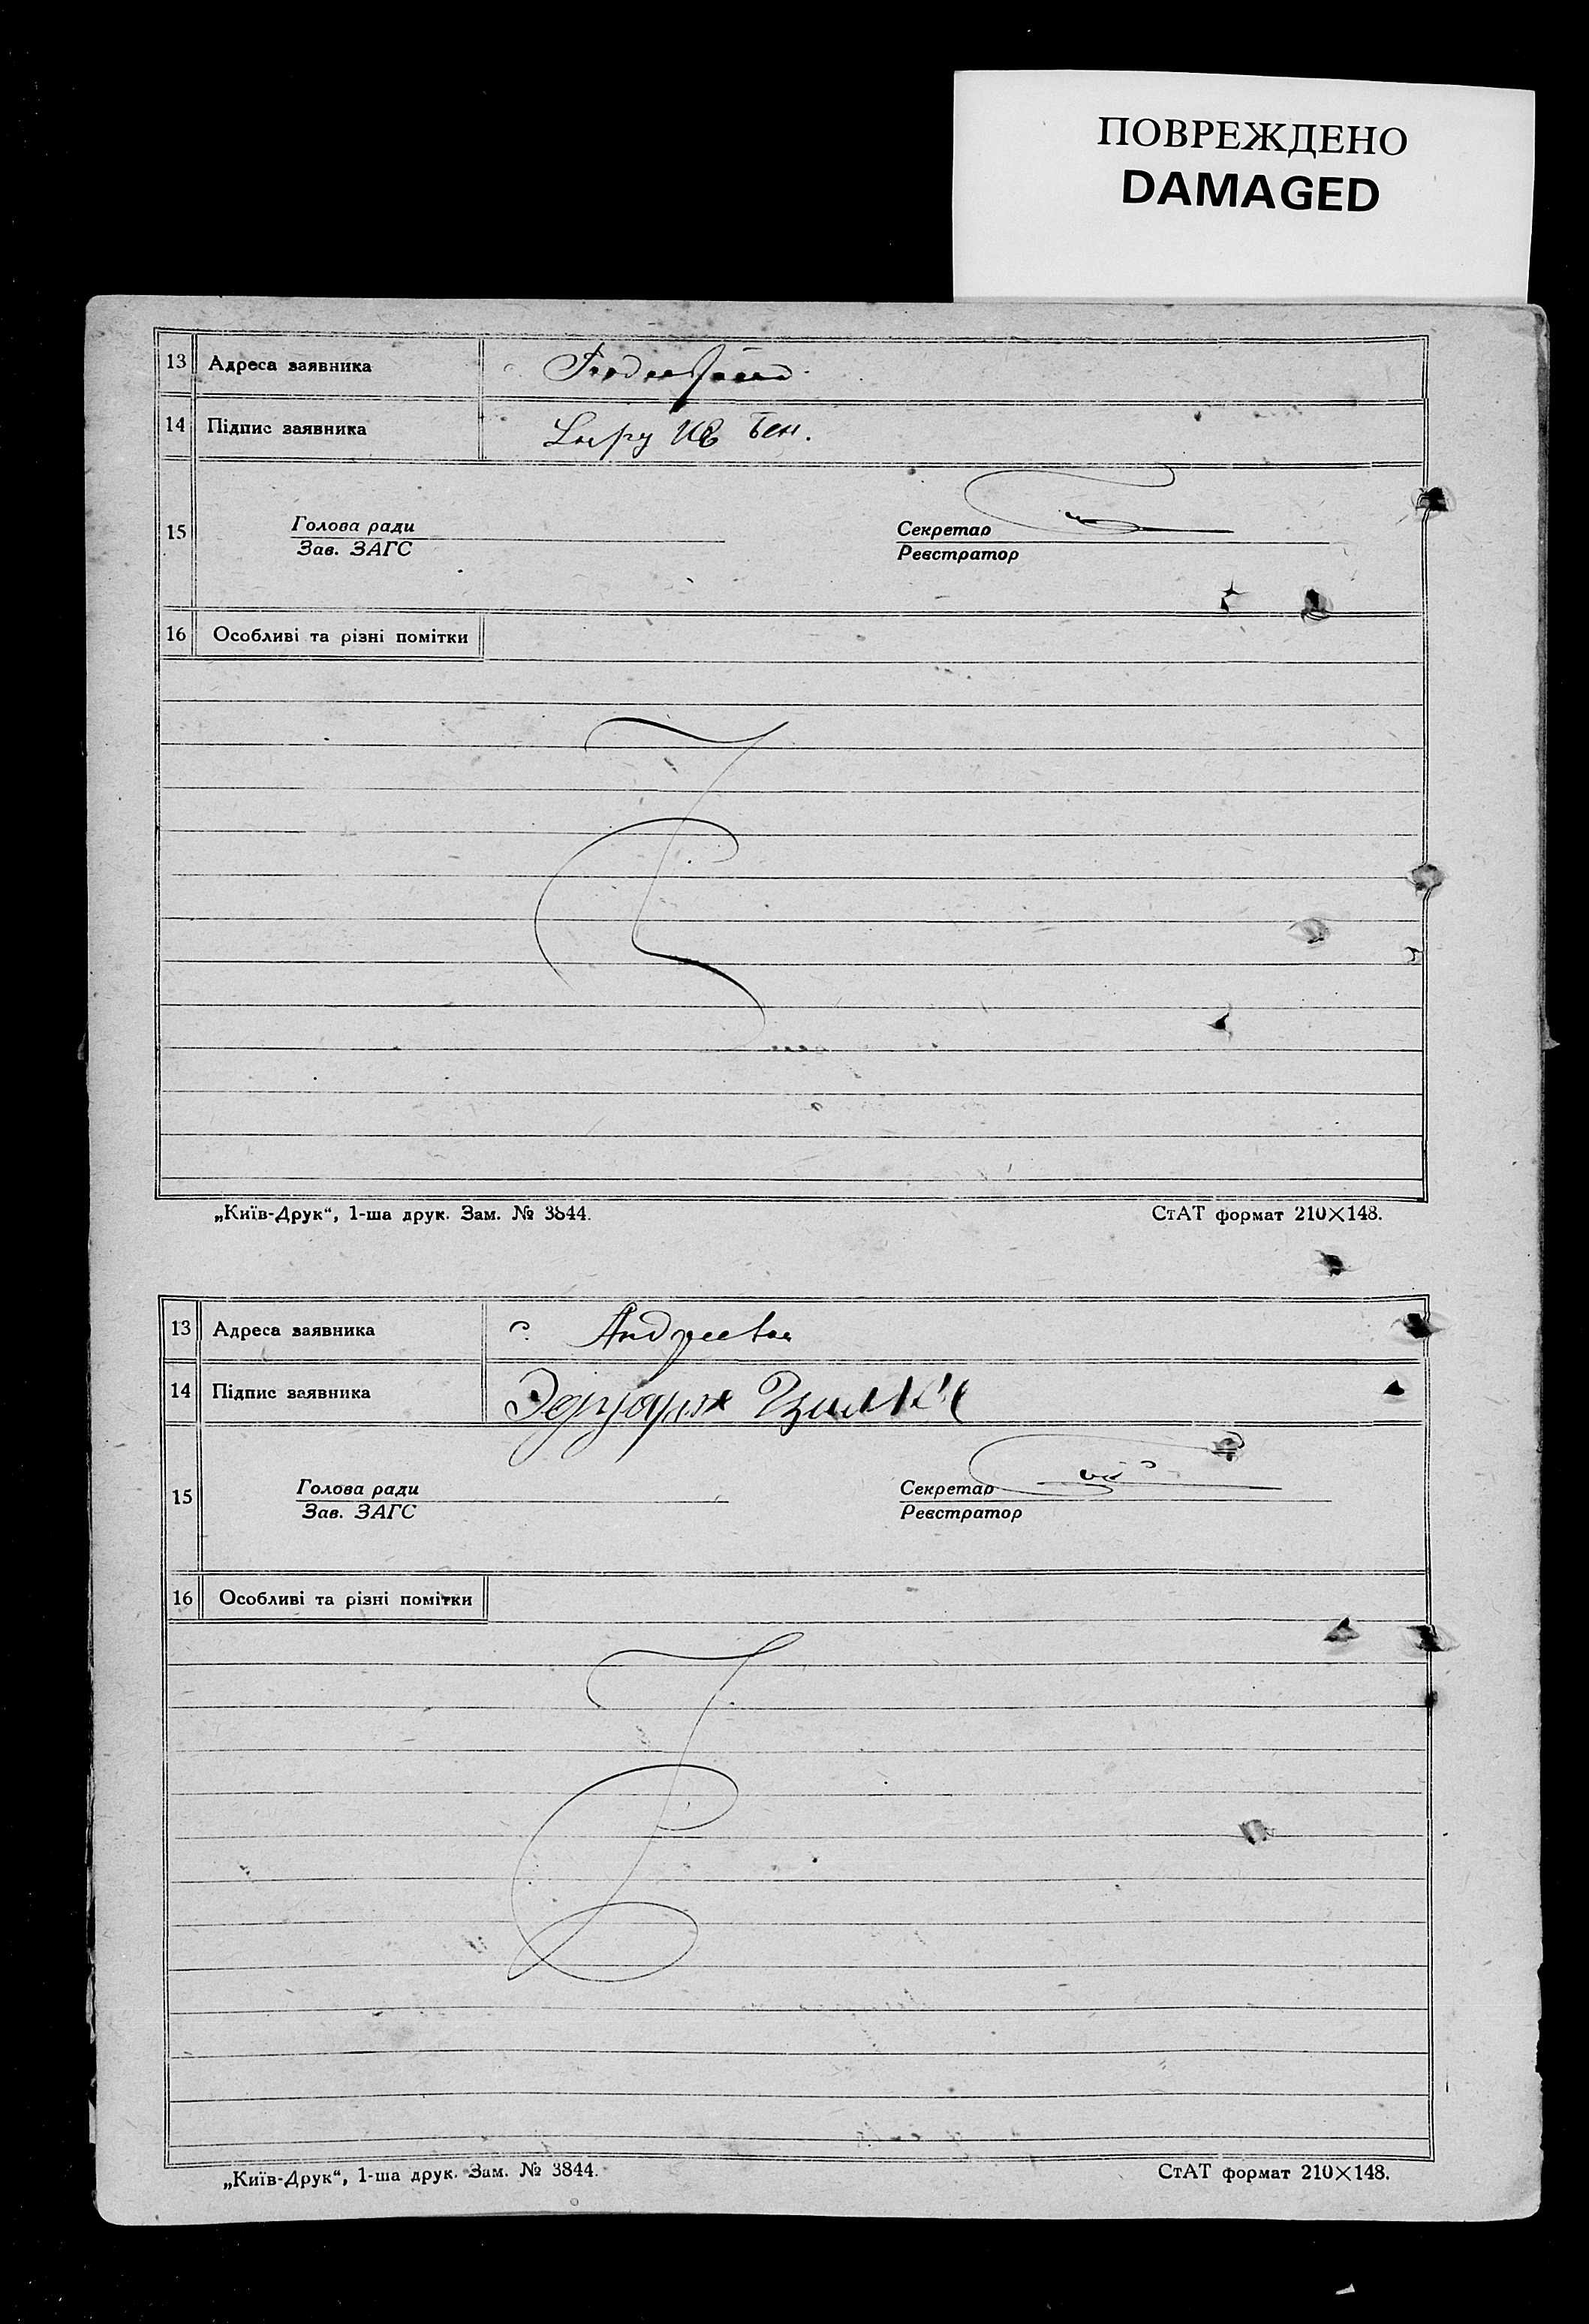 ПОВРЕЖДЕНО
DAMAGED
13 Адреса заявника
14 Підпис заявника
15 Голова ради
Зав. ЗАГС
Секретар
Реєстратор
16 Особливі та різні помітки
„Київ-Друк“, 1-ша друк. Зам. № 3844. СтАТ формат 210×148.
13 Адреса заявника с. Андреевка
14 Підпис заявника
15 Голова ради
Зав. ЗАГС
Секретар
Реєстратор
16 Особливі та різні помітки
„Київ-Друк“, 1-ша друк. Зам. № 3844. СтАТ формат 210×148.